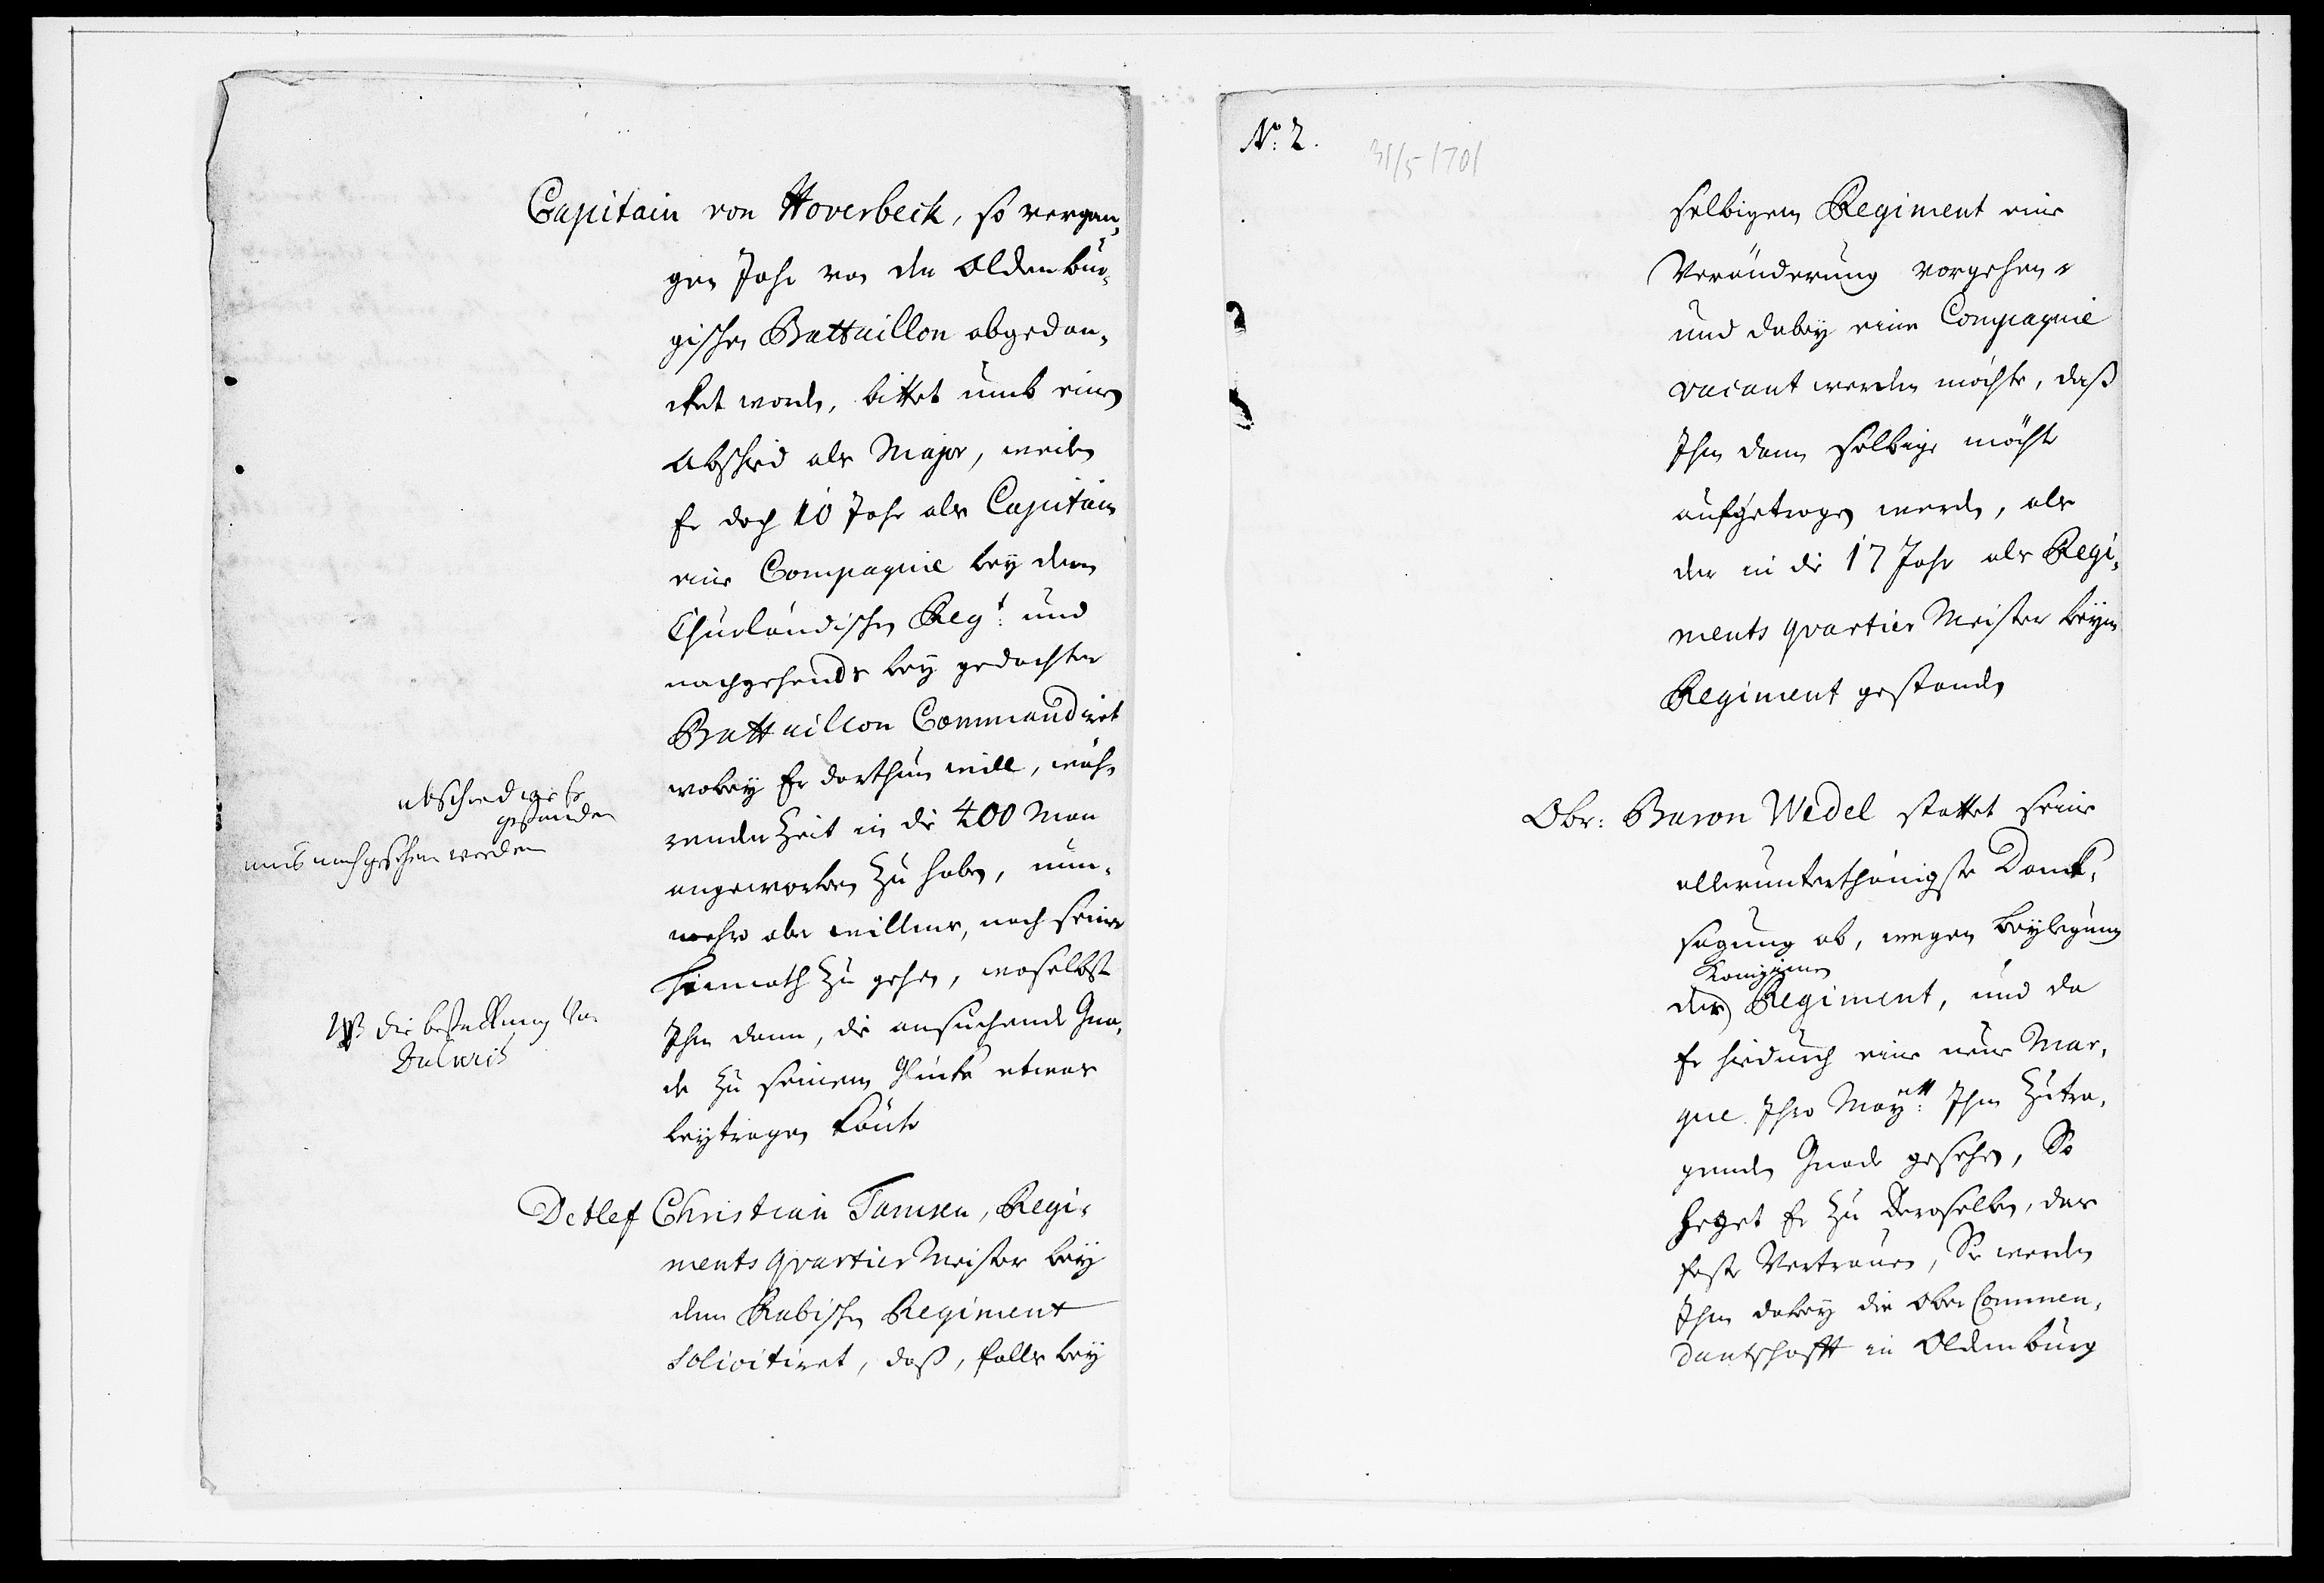 Capitain von Hoverbeck, so vergan,
gen Jahr von den Oldenbur,
gischen Battaillon abgedan,
cket word, bittet umb einen
Abschied als Major, weilen
Er doch 10 Jahr als Capitain
eine Compagnie bey dem
Churländischen Regt: und
nachgehends bey gedachten
Battaillon Commandiret
wobey Er darthun will, wäh,
render Zeit in die 400 Man
angeworben zu haben, nun,
mehro aber willens, nach seiner
Heimath zu gehen, woselbst
Ihm dann, die ansuchende Gna,
de zu seinem Glücke etwas
beytragen könte
abschied wie Er
gestanden
mus nachgesehen werden
die bestallung
Detlef Christian Tamsen, Regi,
ments quartier Meister bey
dem Rabischen Regiment
solicitiret, daß, falls bey
No: 2.
31/5 1701
selbigem Regiment eine
Veränderung vorgehen
und dabey eine Compagnie
vacant werden möchte, daß
Ihm dann selbige möchte
aufgetragen werden, als
der in die 17 Jahr als Regi,
ments quartier Meister beym
Regiment gestanden
Obr: Baron Wedel stattet seine
allerunterthänigste Danck,
sagung ab, wegen beylegung
des Regiment, und da
Er hiedurch eine neue Mar,
que Ihro Maytt: Ihm zutra,
genden Gnade gesehen, So
heget Er zu Deroselben, das
feste Vertrauen, Sie werden
Ihm dabey die Ober Commen,
dantschafft in Oldenburg